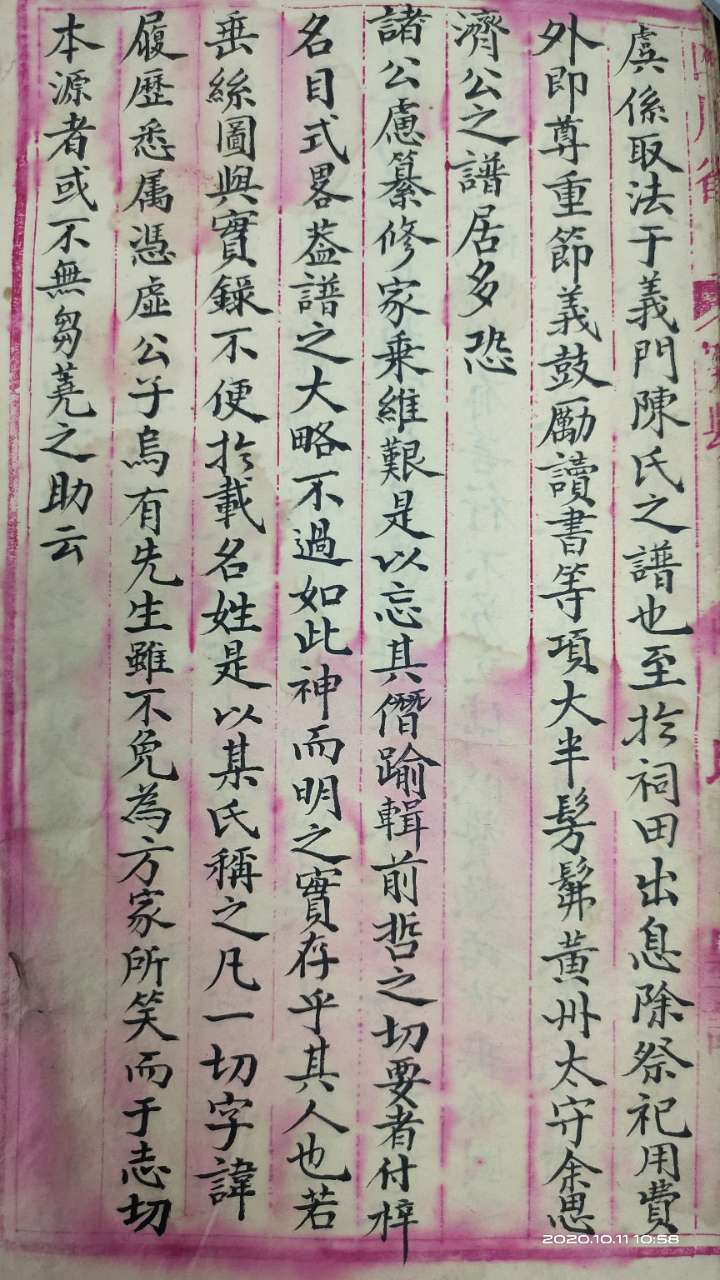 虞係取法于義門陳氏之譜也至扵祠田出息除祭祀用費
外即尊重節義鼓勵讀書等項大半髣髴黃州太守余思
濟公之譜居多恐
諸公慮纂修家乗維艱是以忘其僭踰輯前哲之切要者付梓
名目式畧葢譜之大略不過如此神而明之實存乎其人也若
垂絲圖與實錄不便扵載名姓是以某氏稱之凡一切字諱
履歷悉属憑虛公子烏有先生雖不免為方家所笑而于志切
本源者或不無芻蕘之助云
2020.10.11 10:58